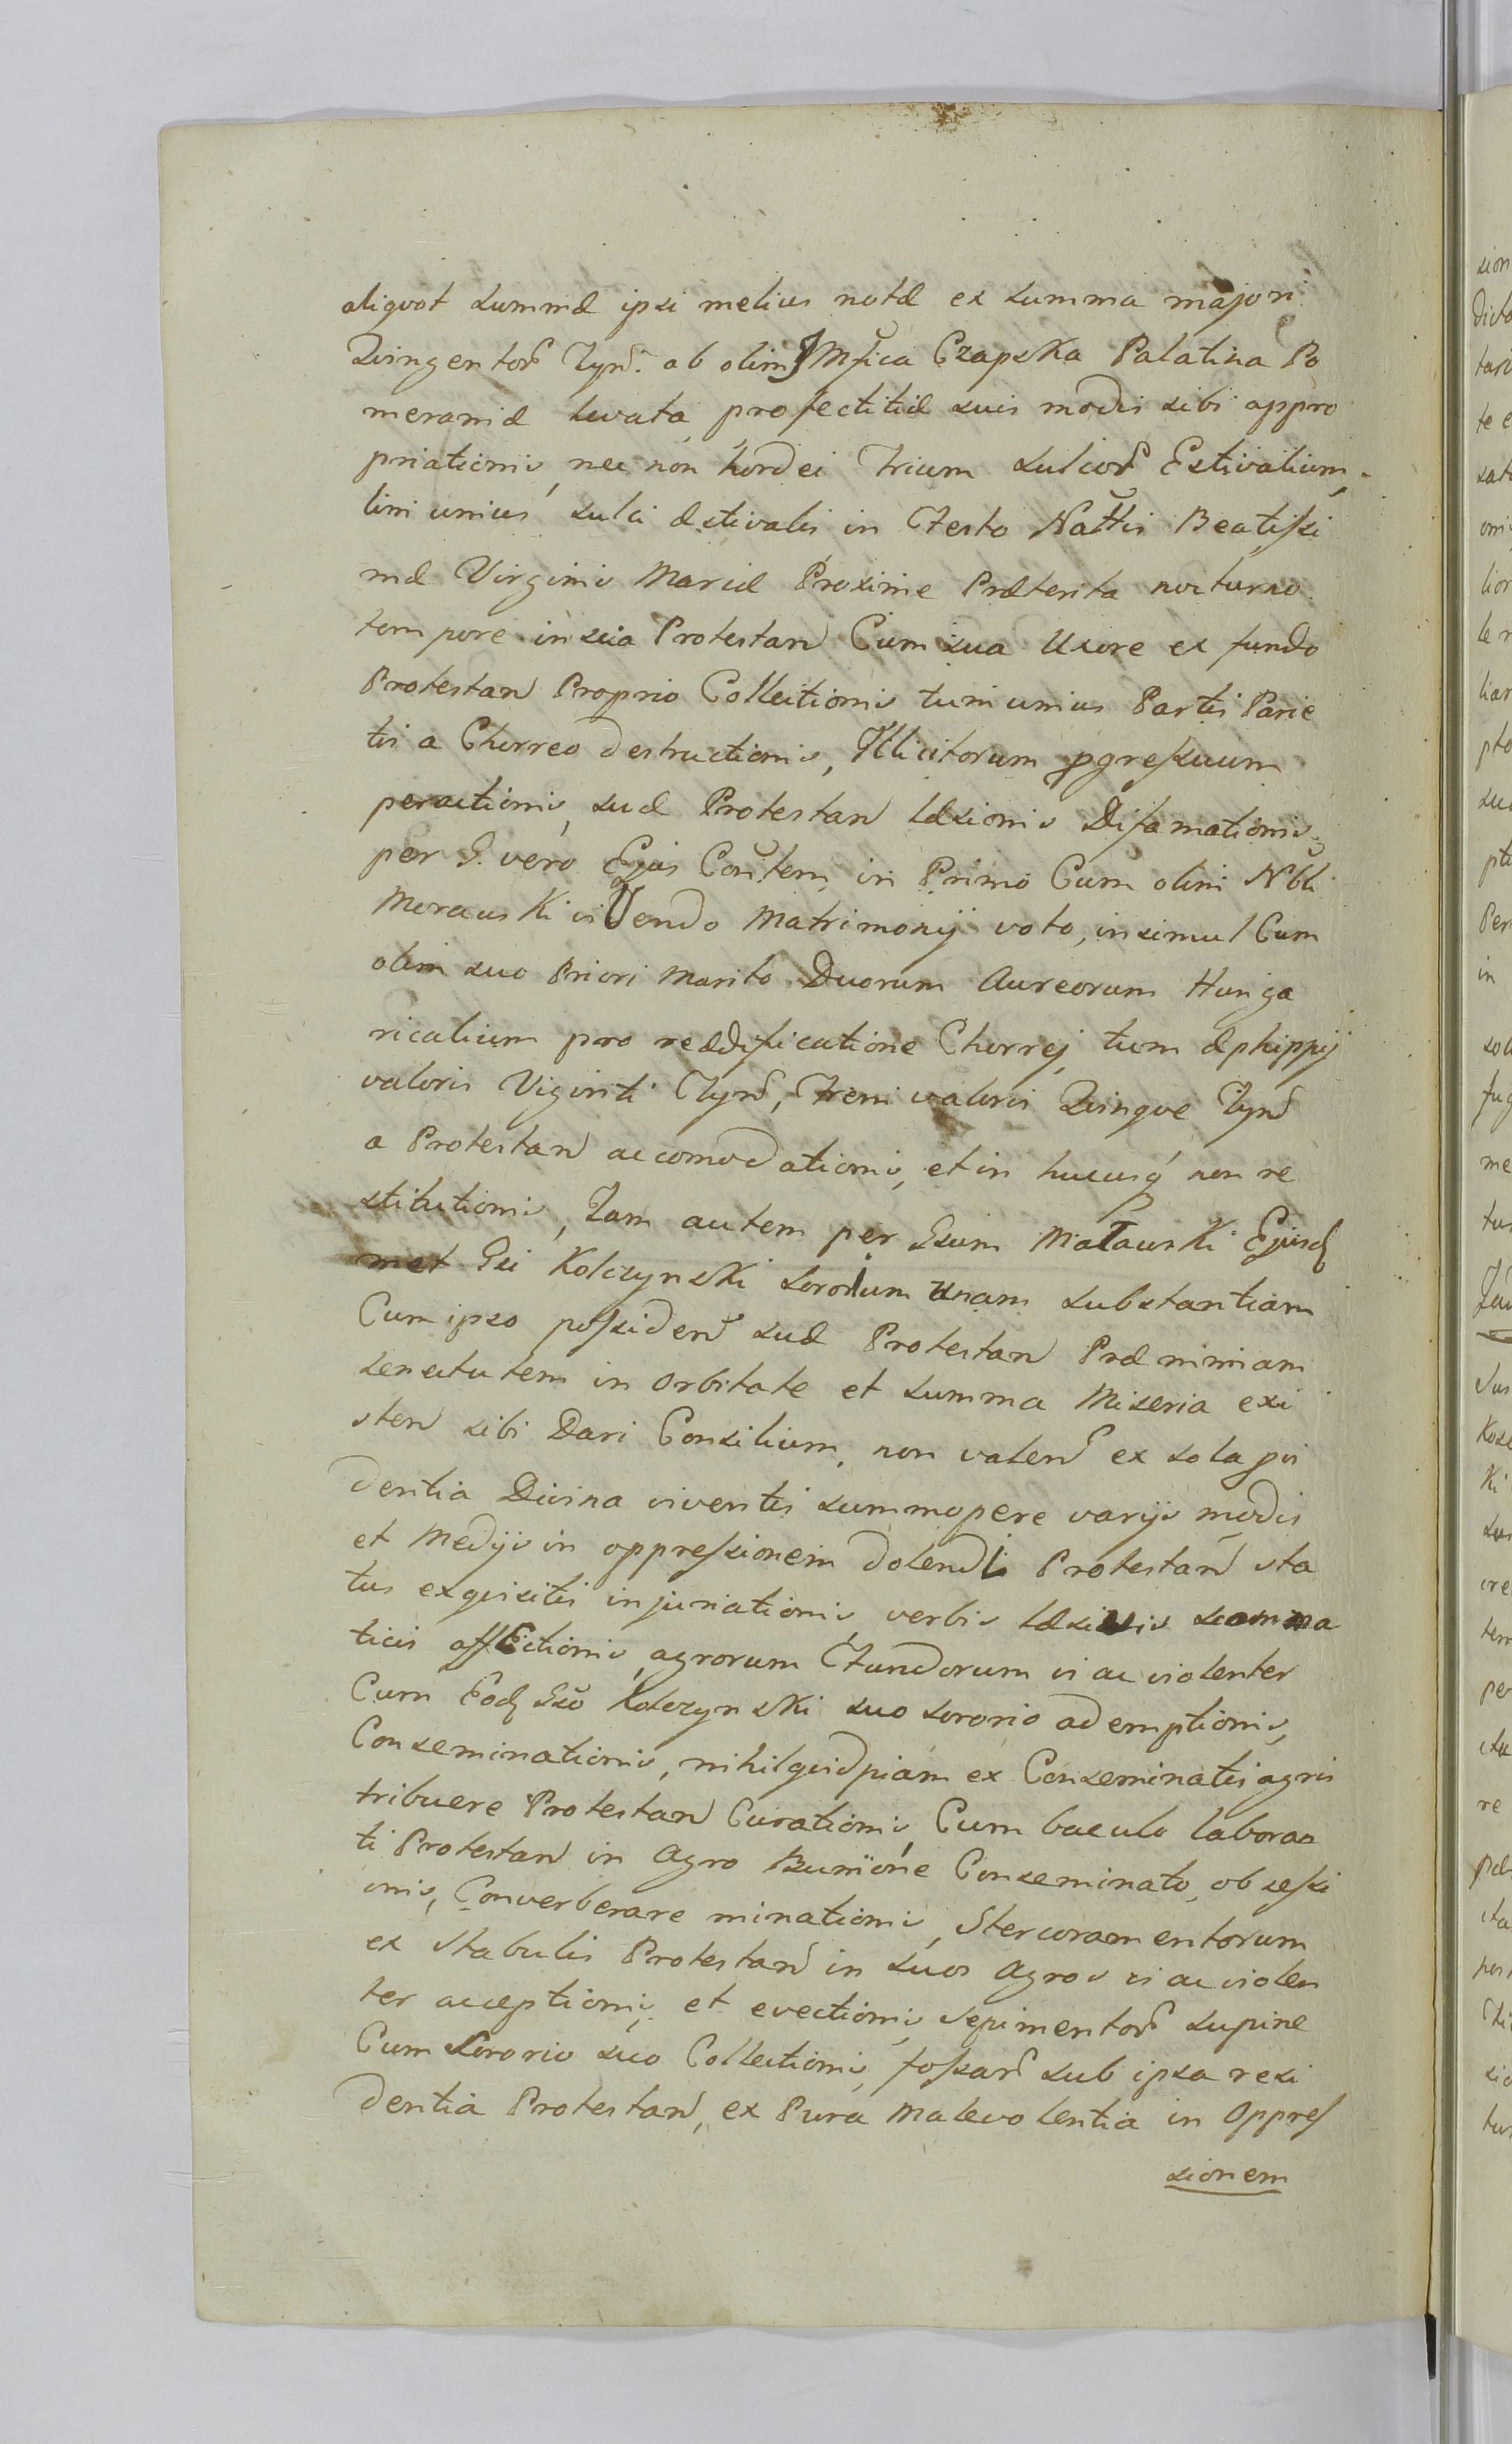 aliqvot summæ ipsi melius notæ ex summa majori
Qvingentor̃ Tynf. ab olim Mfica Czapska Palatina Po
meraniæ levata, profectitiæ suis modis sibi appro
priationis, nec non hordei Trium sulcor̃ Estivalium,
lini unius sulci æstivalis in Festo Nattis Beatissi
mæ Virginis Mariæ Proxime Præterita nocturno
tempore inscia Protestan Cum sua Uxore ex fundo
Protestan Proprio Collectionis tum unius Partis Parie
tis a Chorreo destructionis, Illicitorum pgressuum
peractionis, suæ Protestan læsionis Difamationis,
per G. vero Ejus Contem in Primo Cum olim Nbli
Morauski viVendo Matrimonij voto, insimul Cum
olim suo Priori Marito Duorum Aureorum Hunga
ricalium pro reædificatione Chorrej, tum æphippij
valoris Viginti Tynf, Freni valoris Qvinqve Tynf
a Protestan accomodationis, et in hucusq́ non re
stitutionis, Jam autem per Gsum Małauski Ejusd
met Gsi Kolczynski Sororium Unam substantiam
Cum ipso possiden suæ Protestan Præ nimiam
senectutem in orbitate et summa Miseria exi
sten sibi Dari Consilium, non valen ex sola pvi
dentia Divina viventis summopere varijs modis
et Medijs in oppressionem dolendi Protestan sta
tus exqvisitis injuriationis, verbis læsivis scomma
ticis affectionis, agrorum Fundorum vi ac violenter
Cum Eod Gso Kolczynski suo sororio ademptionis,
Conseminationis, nihilqvidpiam ex Conseminatis agris
tribuere Protestan Curationis, Cum baculo laboran
ti Protestan in Agro Conseminato, obsessi
onis, Converberare minationis, Stercoramentorum
ex Stabulis Protestan in suos Agros vi ac violen
ter acceptionis, et evectionis, Sepimentor̃ supine
Cum Sororio suo Collectionis, fossar̃ sub ipsa resi
dentia Protestan, ex Pura Malevolentia in Oppres
sionem